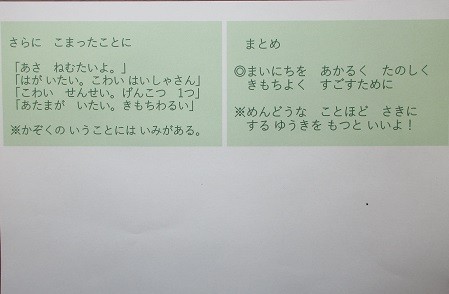 さらに　こまったことに
「あさ　ねむたいよ。」
「はが いたい。こわい はいしゃさん」
「こわい　せんせい。げんこつ　1つ」
「あたまが　いたい。きもちわるい」
※かぞくの いうことには いみがある。
まとめ
◎まいにちを　あかるく　たのしく
きもちよく　すごすために
※めんどうな　ことほど　さきに
する ゆうきを もつと いいよ！